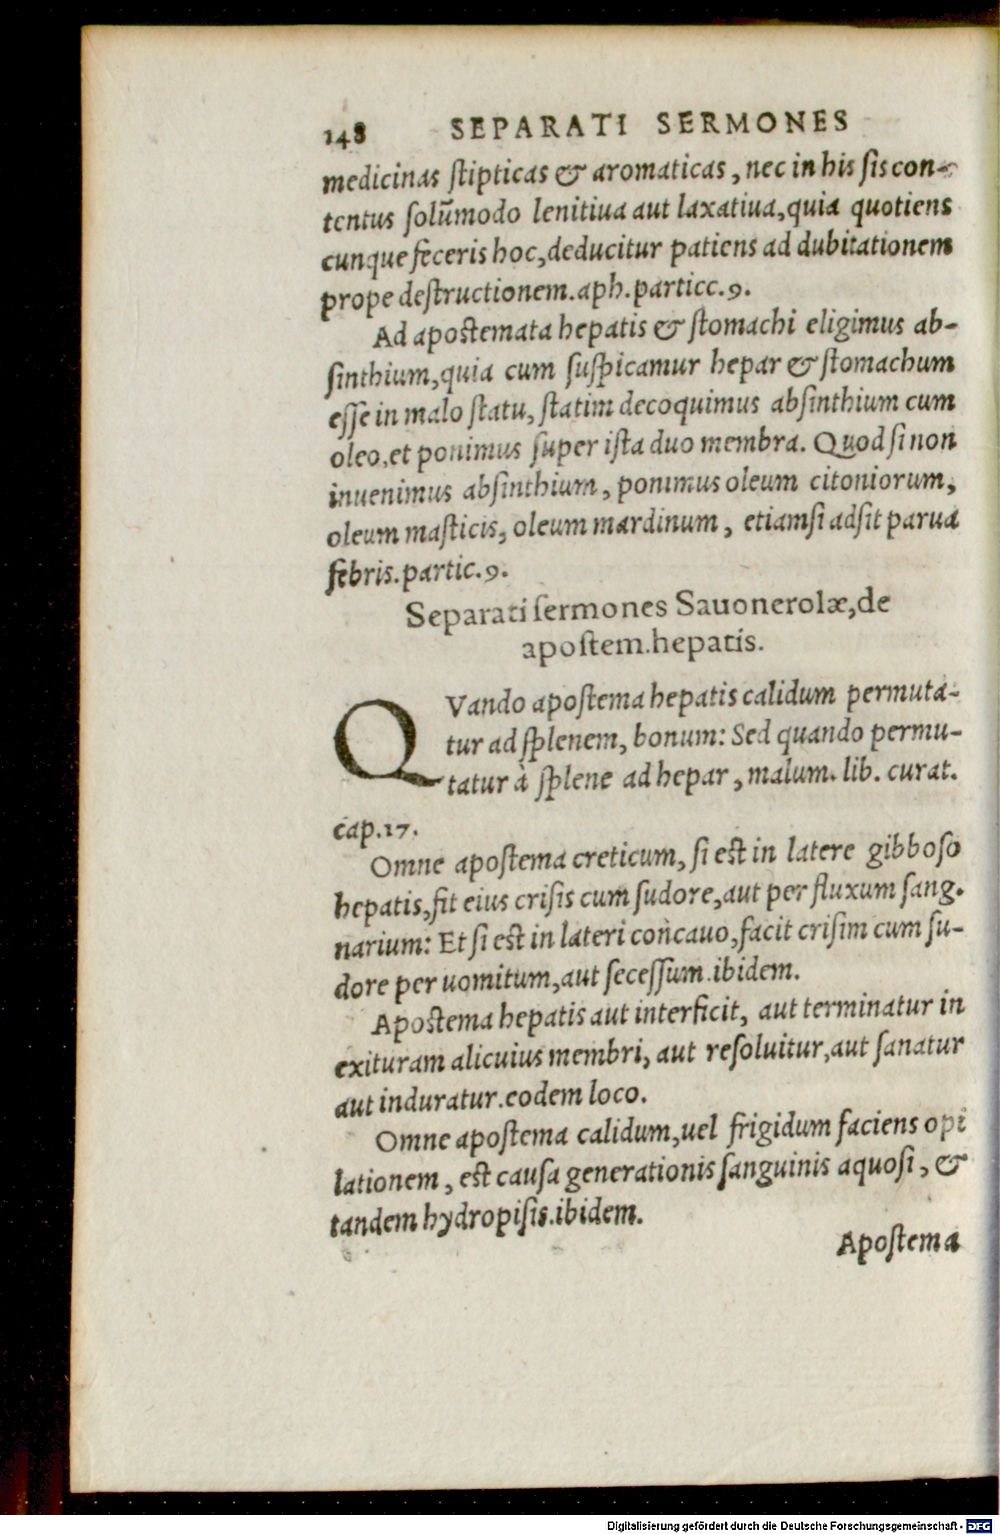 148 SEPARATI SERMONES
medicinas ſtipticas & aromaticas, nec in his ſis con-
tentus ſolũmodo lenitiua aut laxatiua, quia quotiens
cunque feceris hoc, deducitur patiens ad dubitationem
prope deſtructionem. aph. particc. 9.
Ad apoſtemata hepatis & ſtomachi eligimus ab-
ſinthium, quia cum ſuſpicamur hepar & ſtomachum
eſſe in malo ſtatu, ſtatim decoquimus abſinthium cum
oleo, et ponimus ſuper iſta duo membra. Quod ſi non
inuenimus abſinthium, ponimus oleum citoniorum,
oleum maſticis, oleum mardinum, etiamſi adſit parua
febris. partic. 9.
Separati ſermones Sauonerolæ, de
apoſtem. hepatis.
QVando apoſtema hepatis calidum permuta-
tur ad ſplenem, bonum: Sed quando permu-
tatur à ſplene ad hepar, malum. lib. curat.
cap. 17.
Omne apoſtema creticum, ſi eſt in latere gibboſo
hepatis, fit eius criſis cum ſudore, aut per fluxum ſang.
narium: Et ſi eſt in lateri concauo, facit criſim cum ſu-
dore per uomitum, aut ſeceſſum. ibidem.
Apoſtema hepatis aut interficit, aut terminatur in
exituram alicuius membri, aut reſoluitur, aut ſanatur
aut induratur. eodem loco.
Omne apoſtema calidum, uel frigidum faciens opi
lationem, eſt cauſa generationis ſanguinis aquoſi, &
tandem hydropiſis. ibidem.
Apoſtema
Digitalisierung gefördert durch die Deutsche Forschungsgemeinschaft - DFG